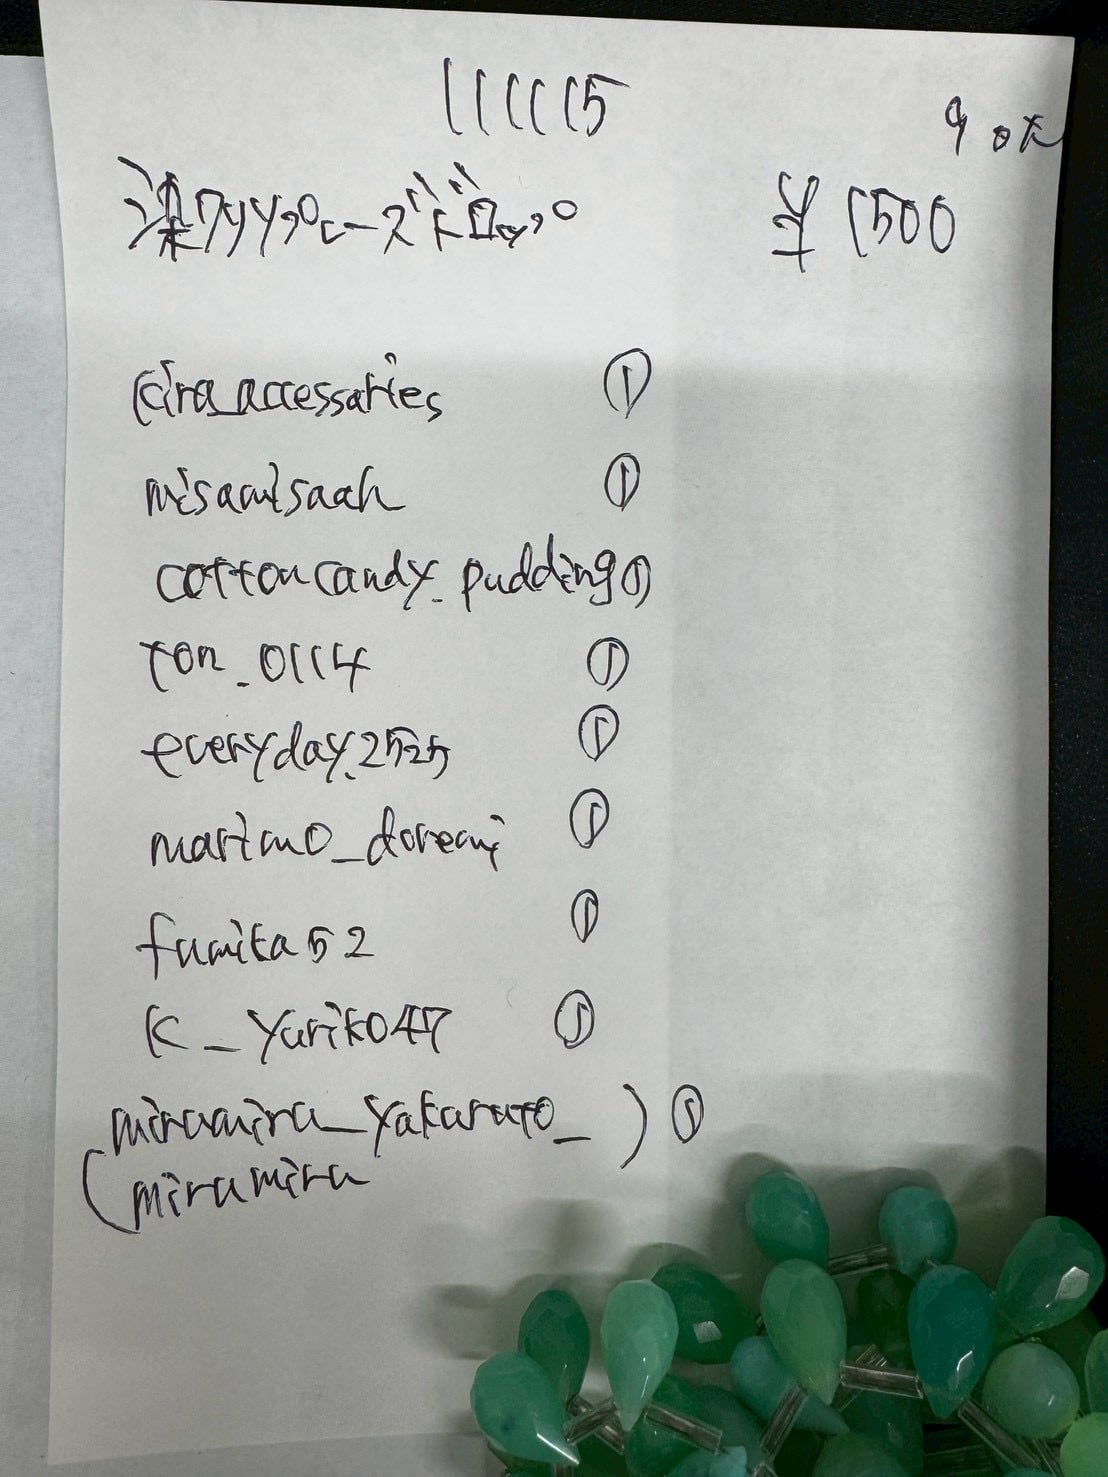 111115
90本
染クリソプレーズドロップ
¥1500
kira_accessaries ①
misamisaah ①
cottoncandy_pudding ①
ton_0114 ①
everyday.2525 ①
marimo_doremi ①
fumika52 ①
K_yuriko47 ①
miramira_yakaruto_ ) ①
(miramira